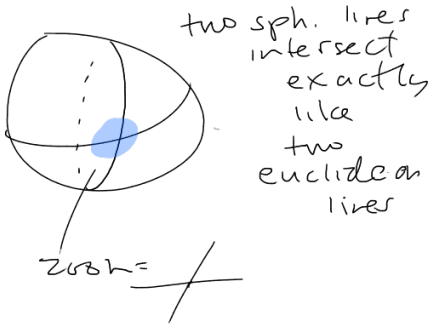 two sph. lines
intersect
exactly
like
two
euclidean
lines
zoom=